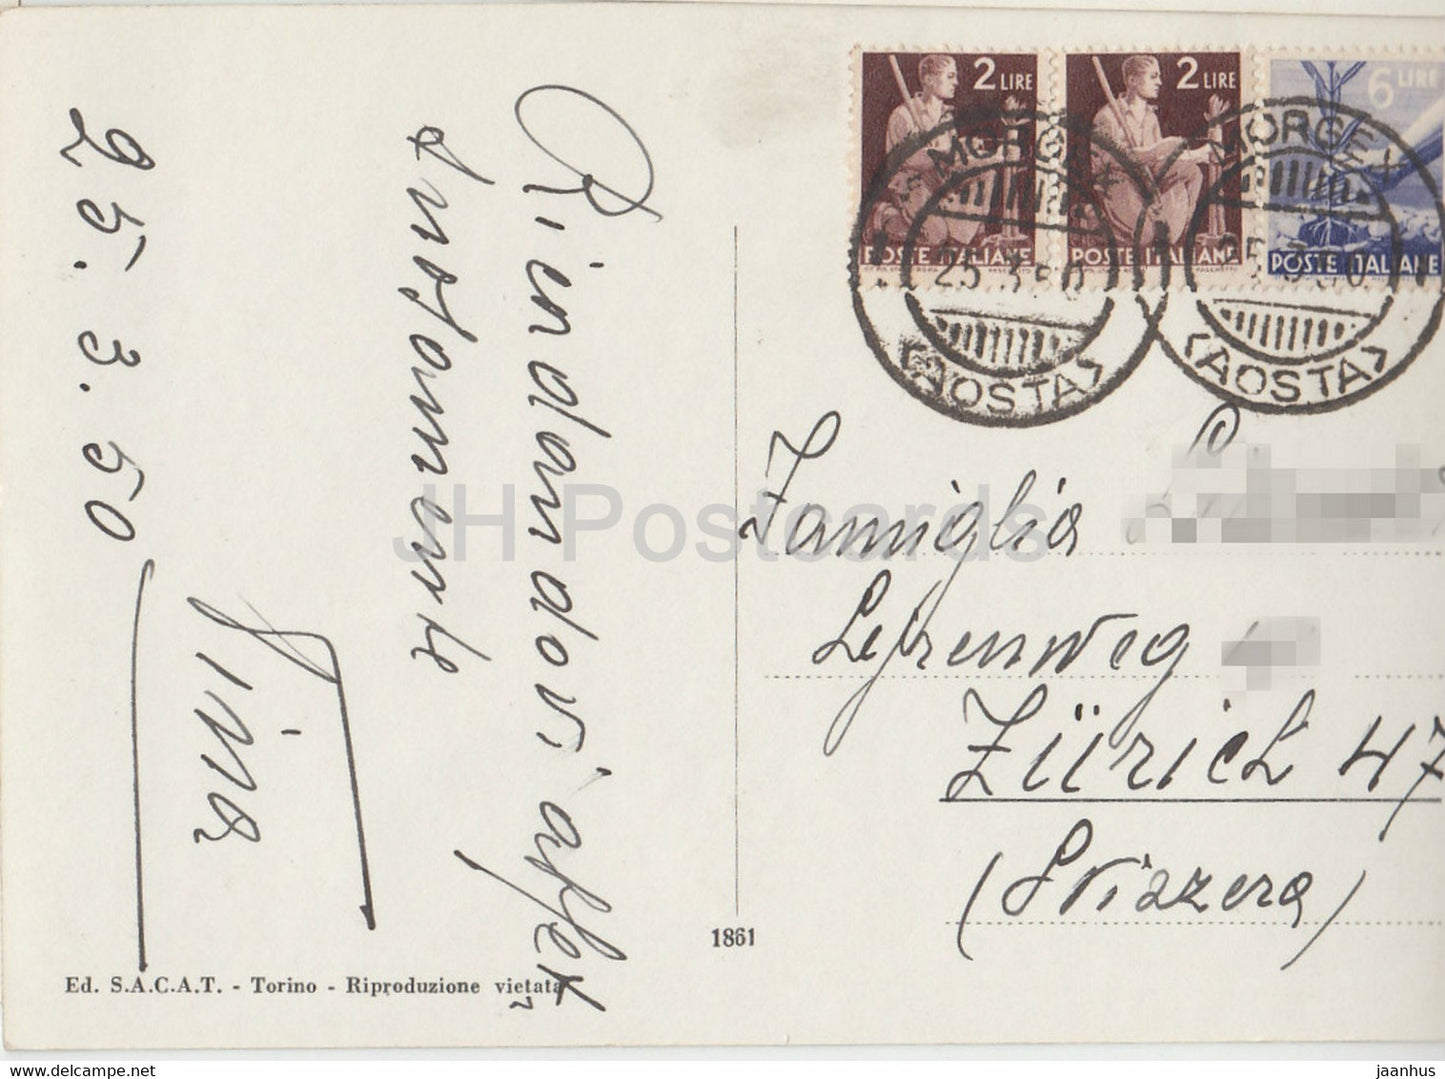 Ricordandovi affet
tuosamente
Nina
25.3.50
2 LIRE
POSTE ITALIANE
2 LIRE
POSTE ITALIANE
6 LIRE
POSTE ITALIANE
MORGEX
25.3.50
(AOSTA)
MORGEX
25.3.50
(AOSTA)
Famiglia
Zürich 47
(Svizzera)
1861
Ed. S.A.C.A.T. - Torino - Riproduzione vietata
JH Postcards
www.delcampe.net
jaanhus